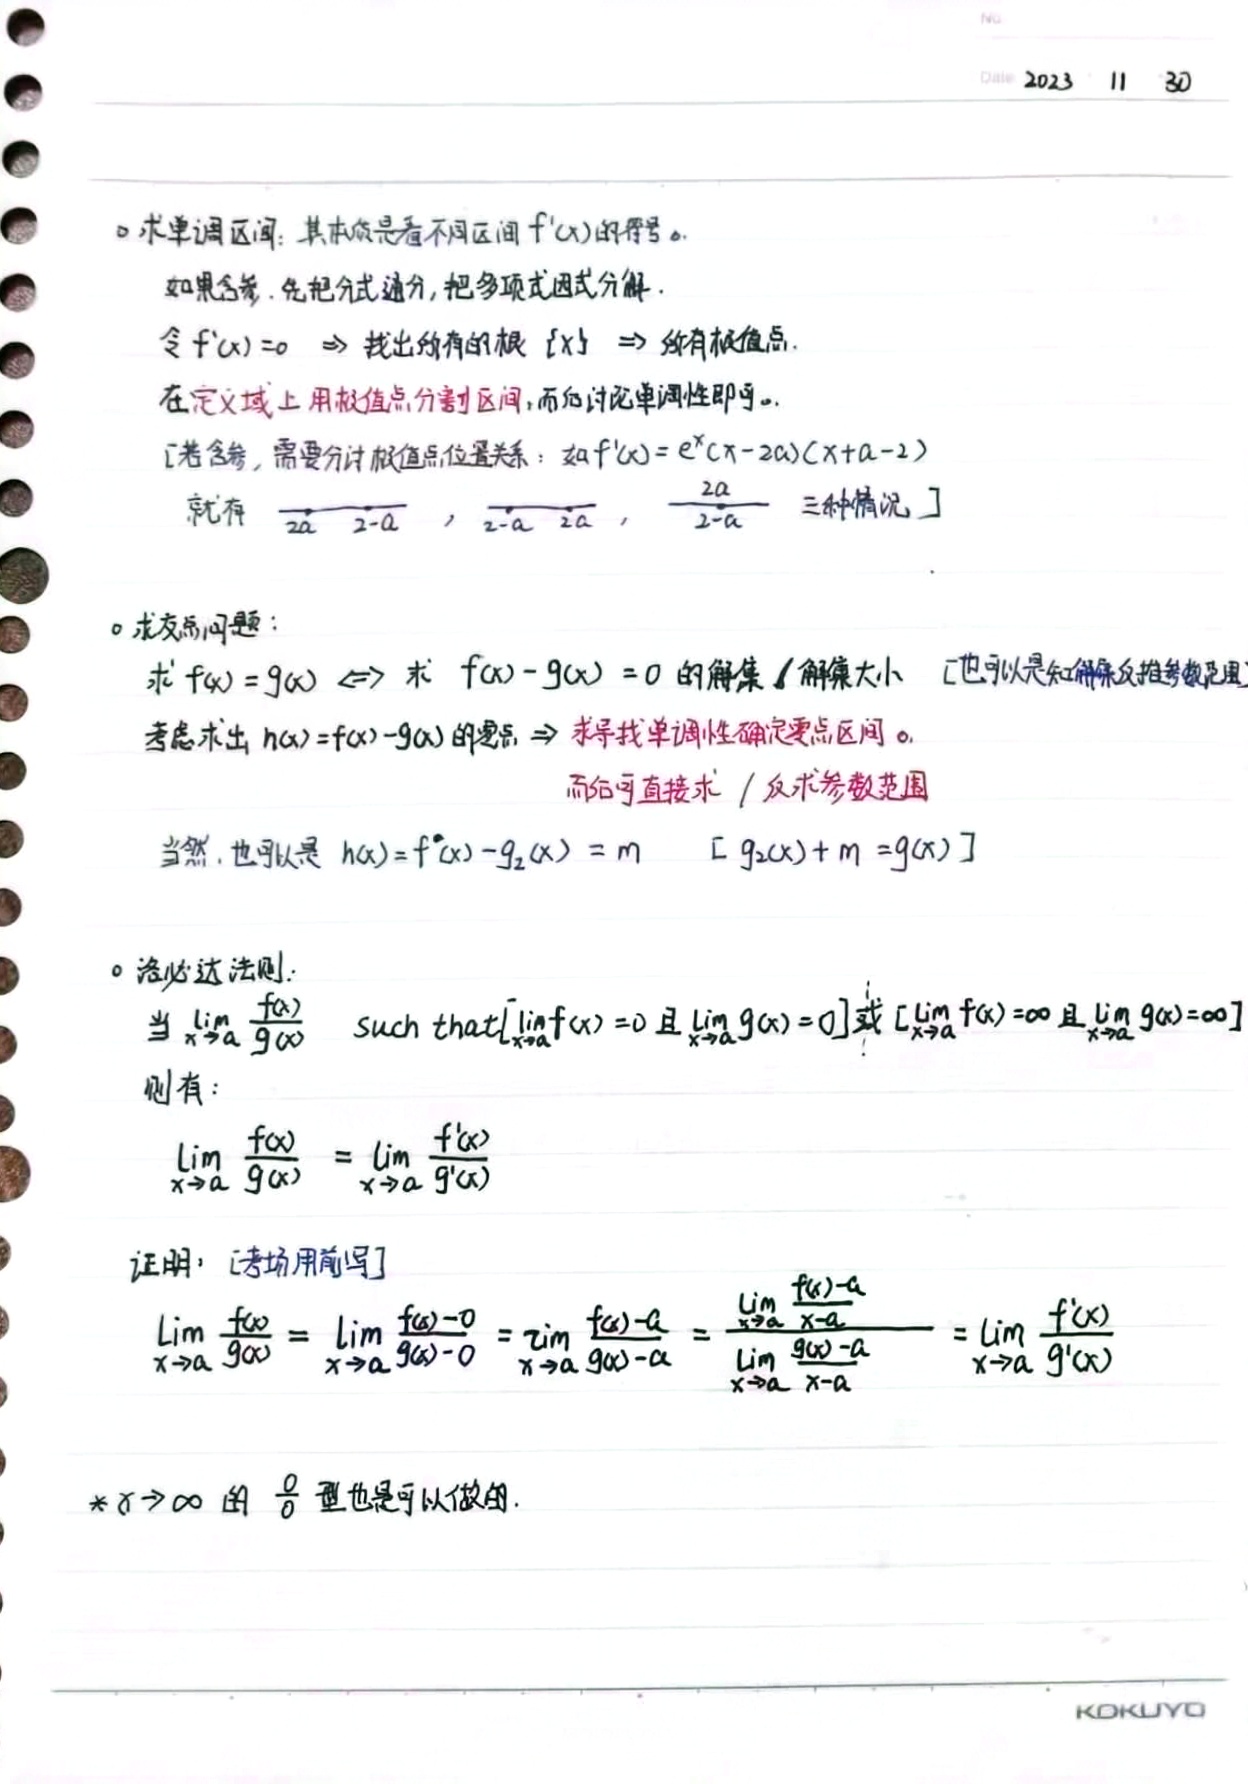 No.
Date 2023 11 30
○ 求单调区间: 其本质是看不同区间 f'(x) 的符号。
如果含参, 先把分式通分, 把多项式因式分解.
令 f'(x)=0 ⇒ 找出所有的根 {x} ⇒ 所有极值点.
在定义域上用极值点分割区间, 而后讨论单调性即可。
[若含参, 需要分讨极值点位置关系: 如 f'(x)=e^x(x-2a)(x+a-2)
就有 2a 2-a , 2-a 2a , 2a 2-a 三种情况]
○ 求交点问题:
求 f(x)=g(x) ⇔ 求 f(x)-g(x)=0 的解集/解集大小 [也可以是知解集反推参数范围]
考虑求出 h(x)=f(x)-g(x) 的零点 ⇒ 求导找单调性确定零点区间。
而后可直接求 / 反求参数范围
当然, 也可以是 h(x)=f(x)-g₂(x)=m [g₂(x)+m=g(x)]
○ 洛必达法则:
当 lim x→a f(x)/g(x) such that [lim x→a f(x)=0 且 lim x→a g(x)=0] 或 [lim x→a f(x)=∞ 且 lim x→a g(x)=∞]
则有:
lim x→a f(x)/g(x) = lim x→a f'(x)/g'(x)
证明: [考场用前写]
lim x→a f(x)/g(x) = lim x→a (f(x)-0)/(g(x)-0) = lim x→a (f(x)-a)/(g(x)-a) = (lim x→a (f(x)-a)/(x-a))/(lim x→a (g(x)-a)/(x-a)) = lim x→a f'(x)/g'(x)
* x→∞ 的 0/0 型也是可以做的.
KOKUYO